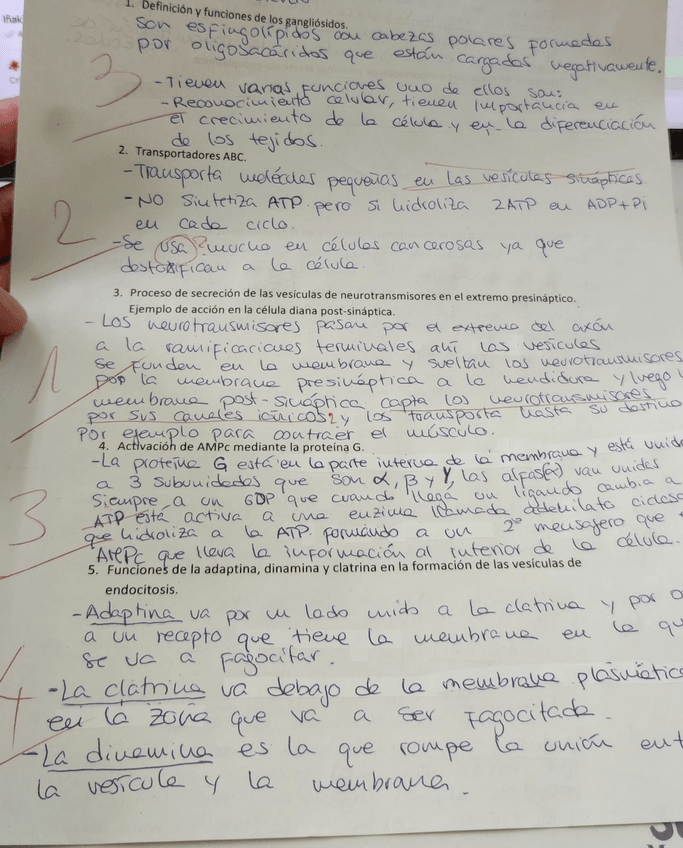 Iñak
1. Definición y funciones de los gangliósidos.
Son esfingolípidos con cabezas polares formadas
por oligosacáridos que están cargados negativamente.
3
- Tienen varias funciones uno de ellos son:
- Reconocimiento celular, tienen importancia en
el crecimiento de la célula y en la diferenciación
de los tejidos.
2. Transportadores ABC.
- Transporta moléculas pequeñas en las vesículas sinápticas
- NO Sintetiza ATP pero si hidroliza 2ATP en ADP+Pi
en cada ciclo.
2
- Se usa ? mucho en células cancerosas ya que
destoxifican a la célula.
3. Proceso de secreción de las vesículas de neurotransmisores en el extremo presináptico.
Ejemplo de acción en la célula diana post-sináptica.
- Los neurotransmisores pasan por el extremo del axón
a la ramificaciones terminales ahí las vesículas
se funden en la membrana y sueltan los neurotransmisores
1
por la membrana presináptica a la hendidura y luego
membrana post-sináptica capta los neurotransmisores
por sus canales iónicos? y los transporta hasta su destino
Por ejemplo para contraer el músculo.
4. Activación de AMPc mediante la proteína G.
- La proteína G está en la parte interna de la membrana y está unida
a 3 subunidades que son α, β y γ, las alfas(α) van unidas
Siempre a un GDP que cuando llega un ligando cambia a
3
ATP está activa a una enzima llamada adenilato ciclasa
que hidroliza a la ATP formando a un 2º mensajero que
AMPc que lleva la información al interior de la célula.
5. Funciones de la adaptina, dinamina y clatrina en la formación de las vesículas de
endocitosis.
- Adaptina va por un lado unido a la clatrina y por o
a un recepto que tiene la membrana en la qu
se va a fagocitar.
4
- La clatrina va debajo de la membrana plasmática
en la zona que va a ser fagocitada.
- La dinamina es la que rompe la unión ent
la vesícula y la membrana.